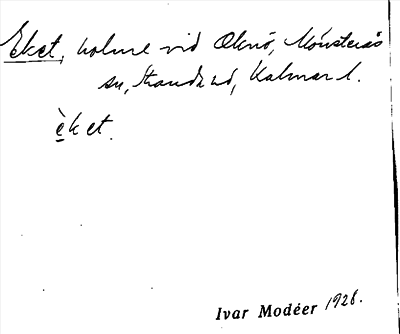 Eket, holme vid Oknö, Mönsterås
sn, Stranda hd, Kalmar l.
èket.
Ivar Modéer 1928.